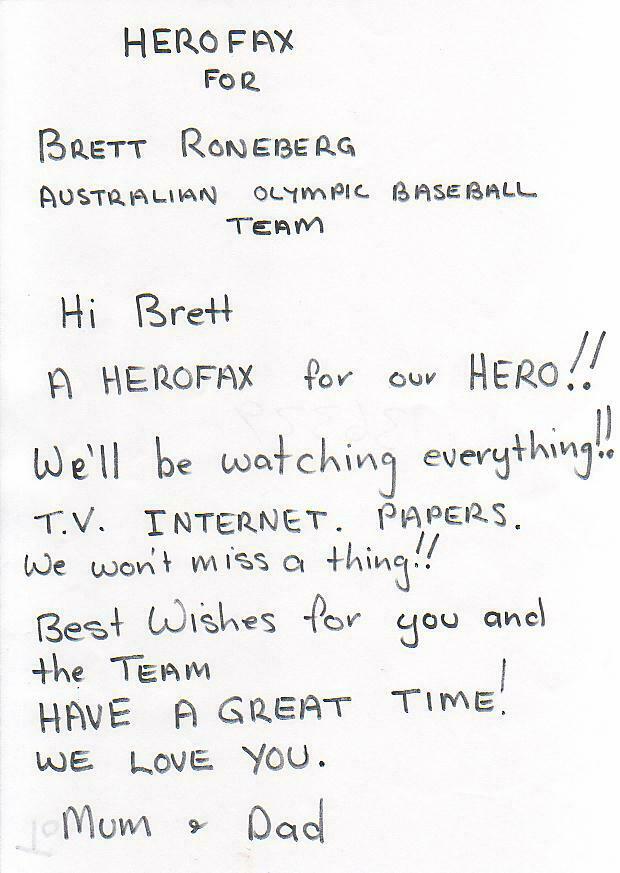 HEROFAX
FOR
BRETT RONEBERG
AUSTRALIAN OLYMPIC BASEBALL
TEAM
Hi Brett
A HEROFAX for our HERO!!
We'll be watching everything!!
T.V. INTERNET. PAPERS.
We won't miss a thing!!
Best Wishes for you and
the TEAM
HAVE A GREAT TIME!
WE LOVE YOU.
Mum & Dad